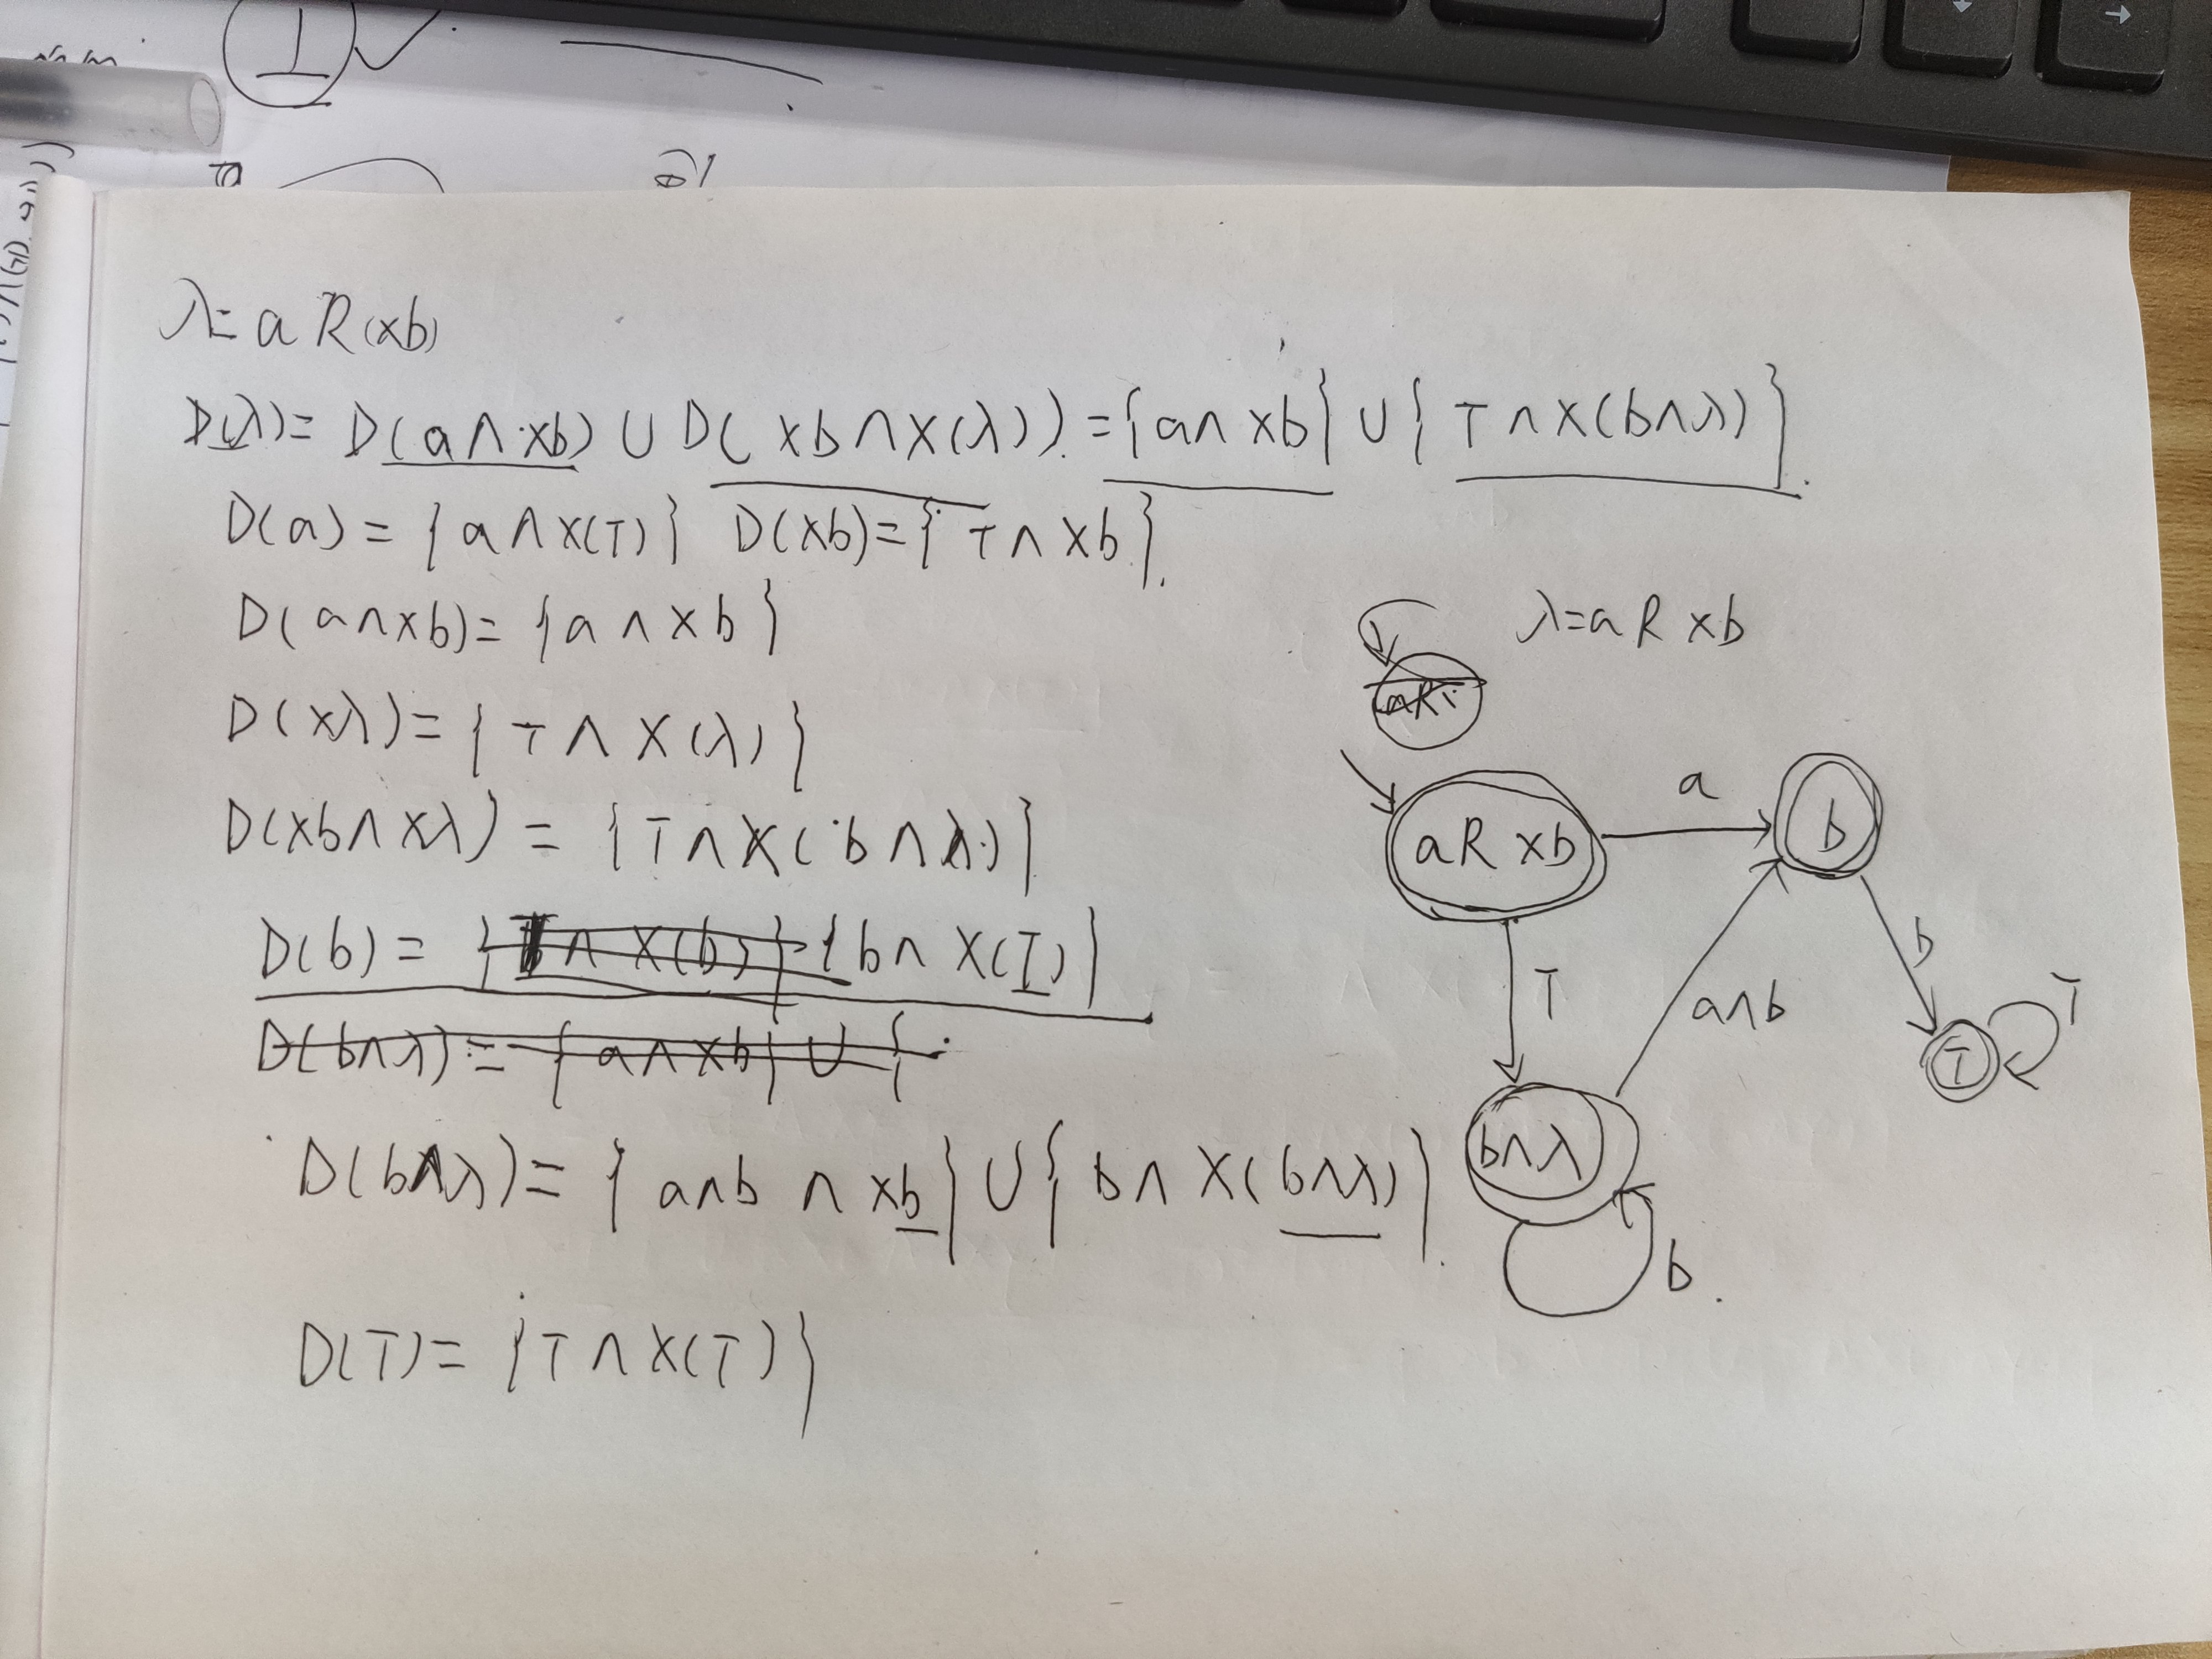 λ=aR(xb)
D(λ)= D(a∧xb) ∪ D( xb∧X(λ))={a∧xb}∪{T∧X(b∧λ)}
D(a)={a∧X(T)} D(xb)={T∧xb}
D(a∧xb)={a∧xb}
D(xλ)={T∧X(λ)}
D(xb∧xλ)={T∧X(b∧λ)}
D(b)={b∧X(T)}
D(b∧λ)={a∧b∧xb}∪{b∧X(b∧λ)}
D(T)={T∧X(T)}
λ=aRxb
aRxb
a
b
T
b∧λ
a∧b
b
b
T
T